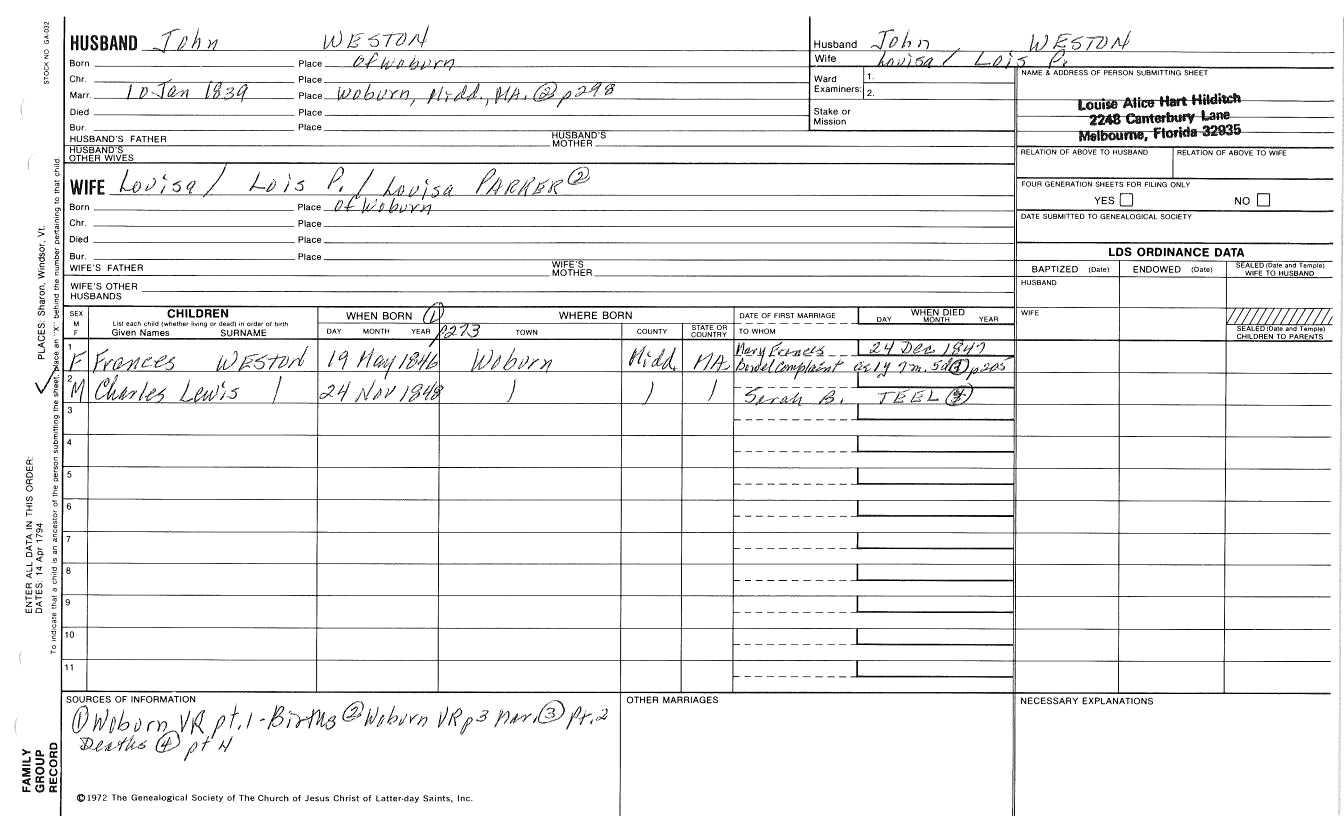 STOCK NO GA-032
HUSBAND John WESTON
Born Place of Woburn
Chr. Place
Marr. 10 Jan 1839 Place Woburn, Midd., MA. ② p298
Died Place
Bur. Place
HUSBAND'S FATHER HUSBAND'S MOTHER
HUSBAND'S OTHER WIVES
WIFE Louisa / Lois P. / Louisa PARKER ②
Born Place of Woburn
Chr. Place
Died Place
Bur. Place
WIFE'S FATHER WIFE'S MOTHER
WIFE'S OTHER HUSBANDS
Husband John WESTON
Wife Louisa / Lois P.
Ward Examiners: 1.
2.
Stake or Mission
NAME & ADDRESS OF PERSON SUBMITTING SHEET
Louise Alice Hart Hilditch
2248 Canterbury Lane
Melbourne, Florida 32935
RELATION OF ABOVE TO HUSBAND RELATION OF ABOVE TO WIFE
FOUR GENERATION SHEETS FOR FILING ONLY
YES NO
DATE SUBMITTED TO GENEALOGICAL SOCIETY
LDS ORDINANCE DATA
BAPTIZED (Date) ENDOWED (Date) SEALED (Date and Temple) WIFE TO HUSBAND
HUSBAND
WIFE
SEALED (Date and Temple) CHILDREN TO PARENTS
SEX M F
CHILDREN
List each child (whether living or dead) in order of birth
Given Names SURNAME
WHEN BORN ① p273
DAY MONTH YEAR
WHERE BORN
TOWN COUNTY STATE OR COUNTRY
DATE OF FIRST MARRIAGE
TO WHOM
WHEN DIED
DAY MONTH YEAR
1 F Frances WESTON 19 May 1846 Woburn Midd. MA Mary Frances 24 Dec 1847
Bowel Complaint ae 1y 7m. 5d ③ p205
2 M Charles Lewis ) 24 Nov 1848 ) ) ) Sarah B. TEEL ④
3
4
5
6
7
8
9
10
11
SOURCES OF INFORMATION
① Woburn VR pt.1 - Births ② Woburn VR p3 Mar. ③ Pt.2
Deaths ④ pt 4
OTHER MARRIAGES
NECESSARY EXPLANATIONS
©1972 The Genealogical Society of The Church of Jesus Christ of Latter-day Saints, Inc.
FAMILY GROUP RECORD
ENTER ALL DATA IN THIS ORDER:
DATES: 14 Apr 1794
PLACES: Sharon, Windsor, Vt.
To indicate that a child is an ancestor of the person submitting the sheet, place an "X" behind the number pertaining to that child.